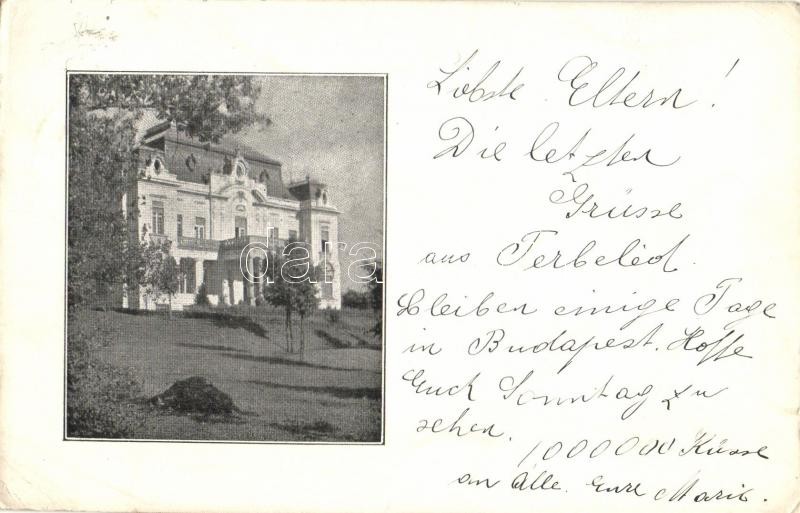 Liebste Eltern!
Die letzten
Grüsse
aus Terbeléd.
Bleiben einige Tage
in Budapest. Hoffe
Euch Sonntag zu
sehen.
1000000 Küsse
an Alle. Eure Marie.
darabanth